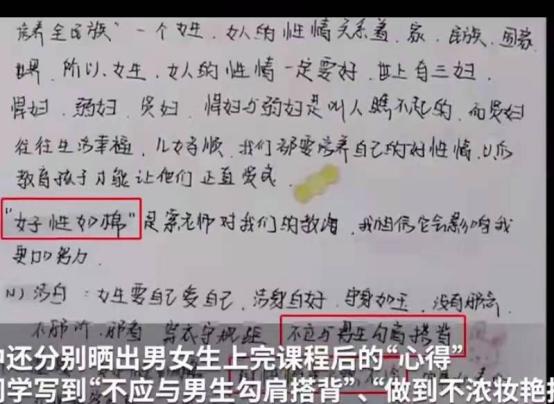 培养全民族"一个女生、女人的性情关系着、家、民族、国家
世界、所以、女生、女人的性情一定要好、世上自三妇、
悍妇、弱妇、贤妇、悍妇与弱妇是叫人瞧不起的、而贤妇
往往生活幸福、儿女孝顺、我们都要培养自己的好性情、以后
教育孩子才能让他们正直
"女子性如棉"是 老师对我们的教诲、我相信它会影响我
更加努力.
洁白：女生要自己爱自己、洁身自好、守身如玉、没有邪
不 不应与男生勾肩搭背
中还分别晒出男女生上完课程后的"心得"
同学写到"不应与男生勾肩搭背"、"做到不浓妆艳抹